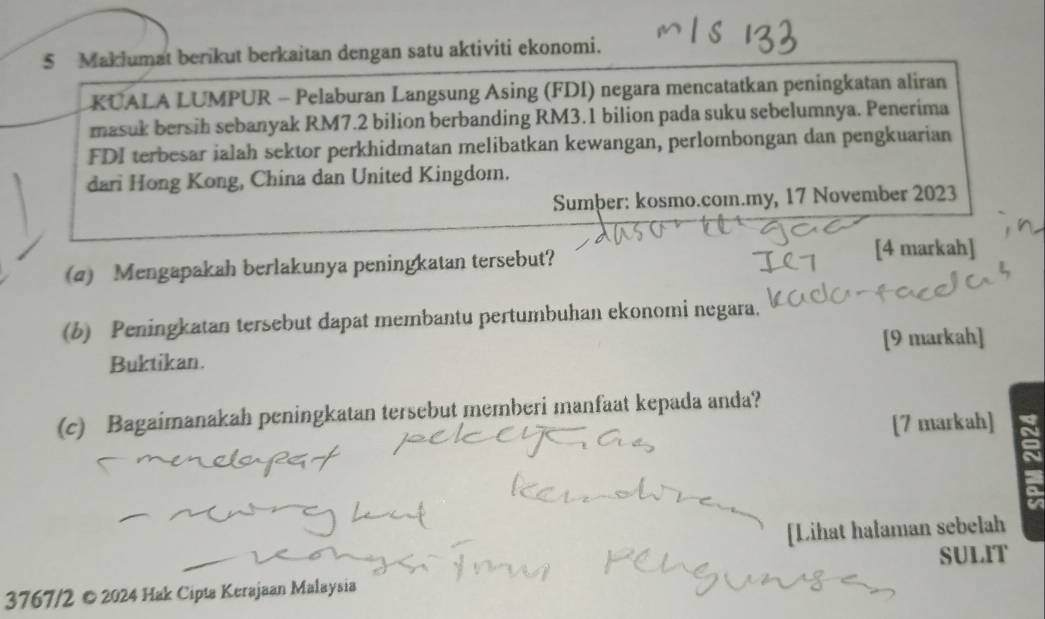 m/s 133
5 Maklumat berikut berkaitan dengan satu aktiviti ekonomi.
KUALA LUMPUR – Pelaburan Langsung Asing (FDI) negara mencatatkan peningkatan aliran
masuk bersih sebanyak RM7.2 bilion berbanding RM3.1 bilion pada suku sebelumnya. Penerima
FDI terbesar ialah sektor perkhidmatan melibatkan kewangan, perlombongan dan pengkuarian
dari Hong Kong, China dan United Kingdom.
Sumber: kosmo.com.my, 17 November 2023
(a) Mengapakah berlakunya peningkatan tersebut?
[4 markah]
(b) Peningkatan tersebut dapat membantu pertumbuhan ekonomi negara.
Buktikan.
[9 markah]
(c) Bagaimanakah peningkatan tersebut memberi manfaat kepada anda?
[7 markah]
- mendapat
SPM 2024
[Lihat halaman sebelah
SULIT
3767/2 © 2024 Hak Cipta Kerajaan Malaysia